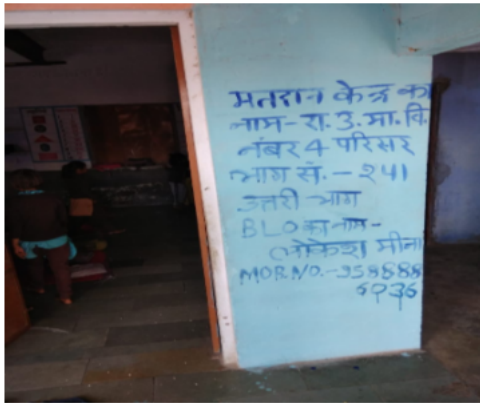 मतदान केन्द्र का
नाम-रा.उ.मा.वि.
नंबर 4 परिसर
भाग सं.-241
उत्तरी भाग
BLO का नाम-
लोकेश मीना
MOB.NO.-958888
6236